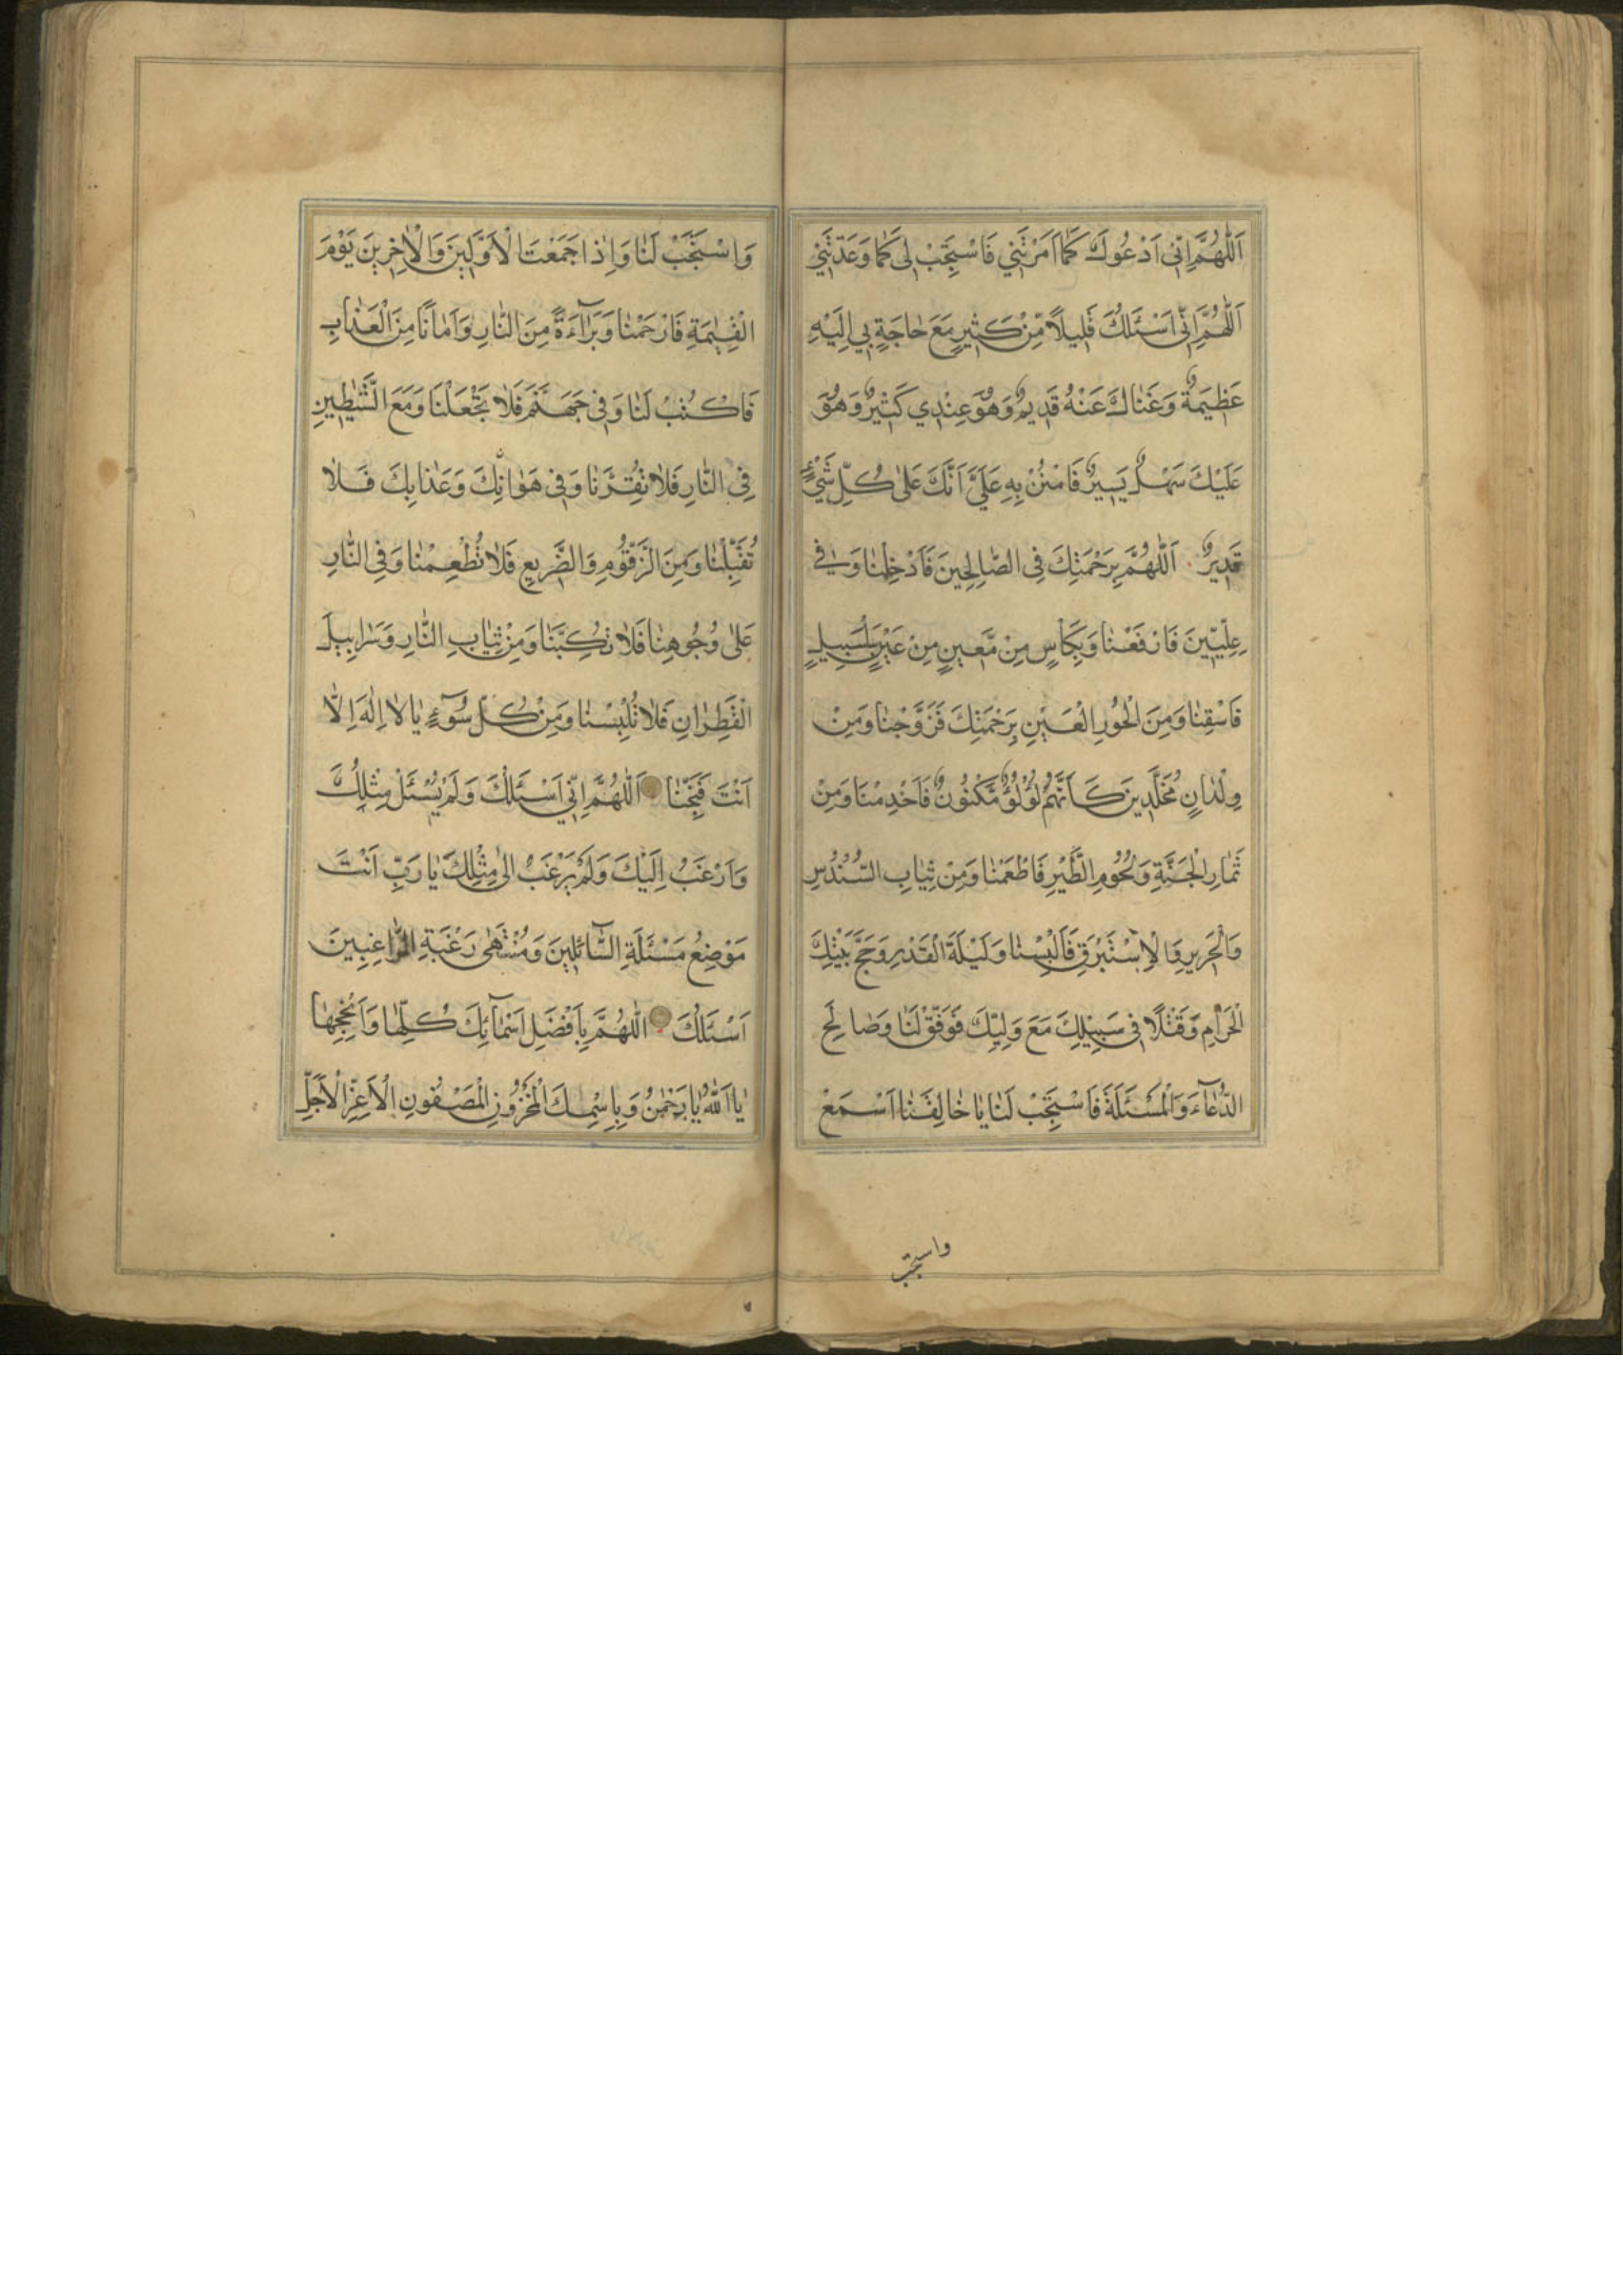 اَللّٰهُمَّ اِنّي اَدْعُوكَ كَمٰا اَمَرْتَني فَاسْتَجِبْ لي كَمٰا وَعَدْتَني
اَللّٰهُمَّ اِنّي اَسْئَلُكَ قَليلاً مِّنْ كَثيرٍ مَعَ حٰاجَةٍ بي اِلَيْهِ
عَظيمَةٌ وَغَنٰاكَ عَنْهُ قَديمٌ وَهُوَ عِنْدي كَثيرٌ وَهُوَ
عَلَيْكَ سَهْلٌ يَسيرٌ فَامْنُنْ بِهِ عَلَيَّ اَنَّكَ عَلىٰ كُلِّ شَيْءٍ
قَديرٌ اَللّٰهُمَّ بِرَحْمَتِكَ فِى الصّٰالِحينَ فَاَدْخِلْنٰا وَفي
عِلِّيّينَ فَارْفَعْنٰا وَبِكَاْسٍ مِنْ مَّعينٍ مِنْ عَيْنٍ سَلْسَبيلٍ
فَاسْقِنٰا وَمِنَ الْحُورِ الْعَيْنِ بِرَحْمَتِكَ فَزَوِّجْنٰا وَمِنْ
وِلْدٰانٍ مُخَلَّدينَ كَاَنَّهُمْ لُؤْلُؤٌ مَّكْنُونٌ فَاَخْدِمْنٰا وَمِنْ
ثِمٰارِ الْجَنَّةِ وَلُحُومِ الطَّيْرِ فَاَطْعِمْنٰا وَمِنْ ثِيٰابِ السُّنْدُسِ
وَالْحَريرِ وَالْاِسْتَبْرَقِ فَاَلْبِسْنٰا وَلَيْلَةَ الْقَدْرِ وَحَجَّ بَيْتِكَ
الْحَرٰامِ وَقَتْلاً في سَبيلِكَ مَعَ وَلِيِّكَ فَوَفِّقْ لَنٰا وَصٰالِحَ
الدُّعٰآءِ وَالْمَسْئَلَةَ فَاسْتَجِبْ لَنٰا يٰا خٰالِقَنٰا اَسْمَعْ
واستجب
وَاسْتَجِبْ لَنٰا وَاِذٰا جَمَعْتَ الْاَوَّلينَ وَالْاٰخِرينَ يَوْمَ
الْقِيٰمَةِ فَارْحَمْنٰا وَبَرٰآءَةً مِنَ النّٰارِ وَاَمٰانًا مِنَ الْعَذٰابِ
فَاكْتُبْ لَنٰا وَفي جَهَنَّمَ فَلاٰ تَجْعَلْنَا وَمَعَ الشَّيٰطينِ
فِي النّٰارِ فَلاٰ تُقِرَّنٰا وَفي هَوٰانِكَ وَعَذٰابِكَ فَلاٰ
تُقَبِّلْنٰا وَمِنَ الزَّقُّومِ وَالضَّريعِ فَلاٰ تُطْعِمْنٰا وَفِي النّٰارِ
عَلىٰ وُجُوهِنٰا فَلاٰ تَكُبَّنٰا وَمِنْ ثِيٰابِ النّٰارِ وَسَرٰابيلَ
الْقَطِرٰانِ فَلاٰ تُلْبِسْنٰا وَمِنْ كُلِّ سُوٓءٍ يٰا لاٰ اِلٰهَ اِلاّٰ
اَنْتَ فَنَجِّنٰا اَللّٰهُمَّ اِنّي اَسْئَلُكَ وَلَمْ يُسْئَلْ مِثْلُكَ
وَاَرْغَبُ اِلَيْكَ وَلَمْ يُرْغَبْ اِلىٰ مِثْلِكَ يٰا رَبِّ اَنْتَ
مَوْضِعُ مَسْئَلَةِ السّٰٓائِلينَ وَمُنْتَهىٰ رَغْبَةِ الرّٰاغِبينَ
اَسْئَلُكَ اَللّٰهُمَّ بِاَفْضَلِ اَسْمٰآئِكَ كُلِّهٰا وَاَنْجَحِهٰا
يٰا اَللّٰهُ يٰا رَحْمٰنُ وَبِاِسْمِكَ الْمَخْزُونِ الْمَصْفُونِ الْاَعَزِّ الْاَجَلِّ